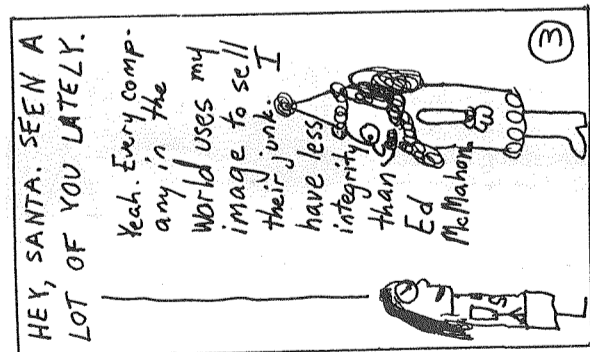 HEY, SANTA. SEEN A
LOT OF YOU LATELY.
Yeah. Every comp-
any in the
World uses my
image to sell
their junk. I
have less
integrity
than
Ed
McMahon.
3